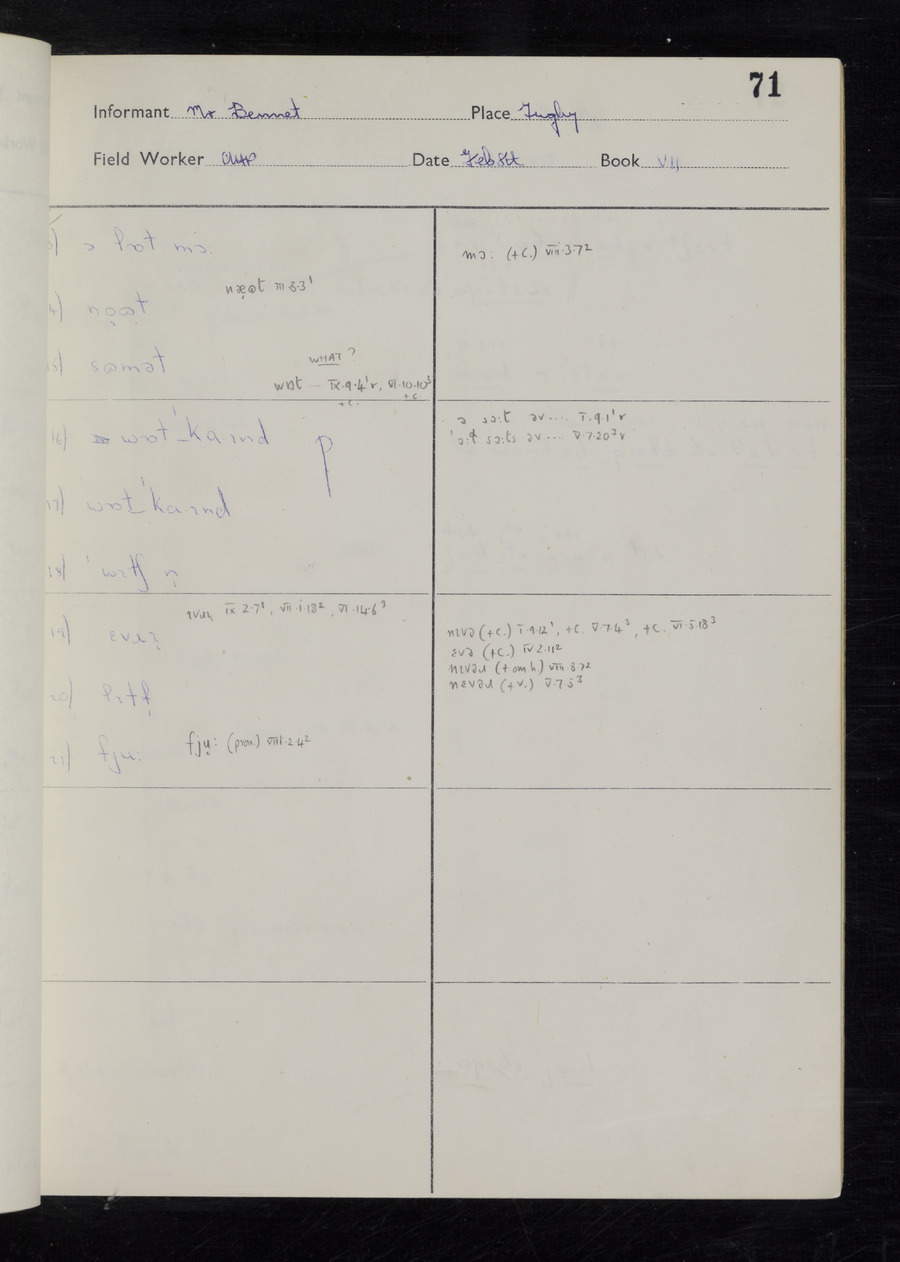 71
Informant Mr Bennet Place Tugby
Field Worker Date Book VII
3) ə lɒt mɔ:
mɔ: (+C.) VIII.3.7²
næʊt III.8.3¹
4) nɒʊt
5) sʊmət
WHAT?
wɒt — IX.9.4¹r, VI.10.10³
+C. +C.
ə sɔ:t əv.... I.9.1¹r
ˈɔ:ɫ sɔ:ts əv.... V.7.20³r
16) wɒt ˈka ɪnd p
17) wɒt ˈka ɪnd
18) ˈwɪtʃ n̩
IX.2.7¹, VII.1.18², VI.14.6³
19) ɛvɹ̩
nɪvə (+C.) I.9.12¹, +C. V.7.4³, +C. VI.5.18³
ɛvə (+C.) IV.2.11²
nɪvəɹ (+ om h) VIII.8.7²
nɛvəɹ (+V.) V.7.5³
20)
fju: (pron.) VIII.2.4²
21) fju: